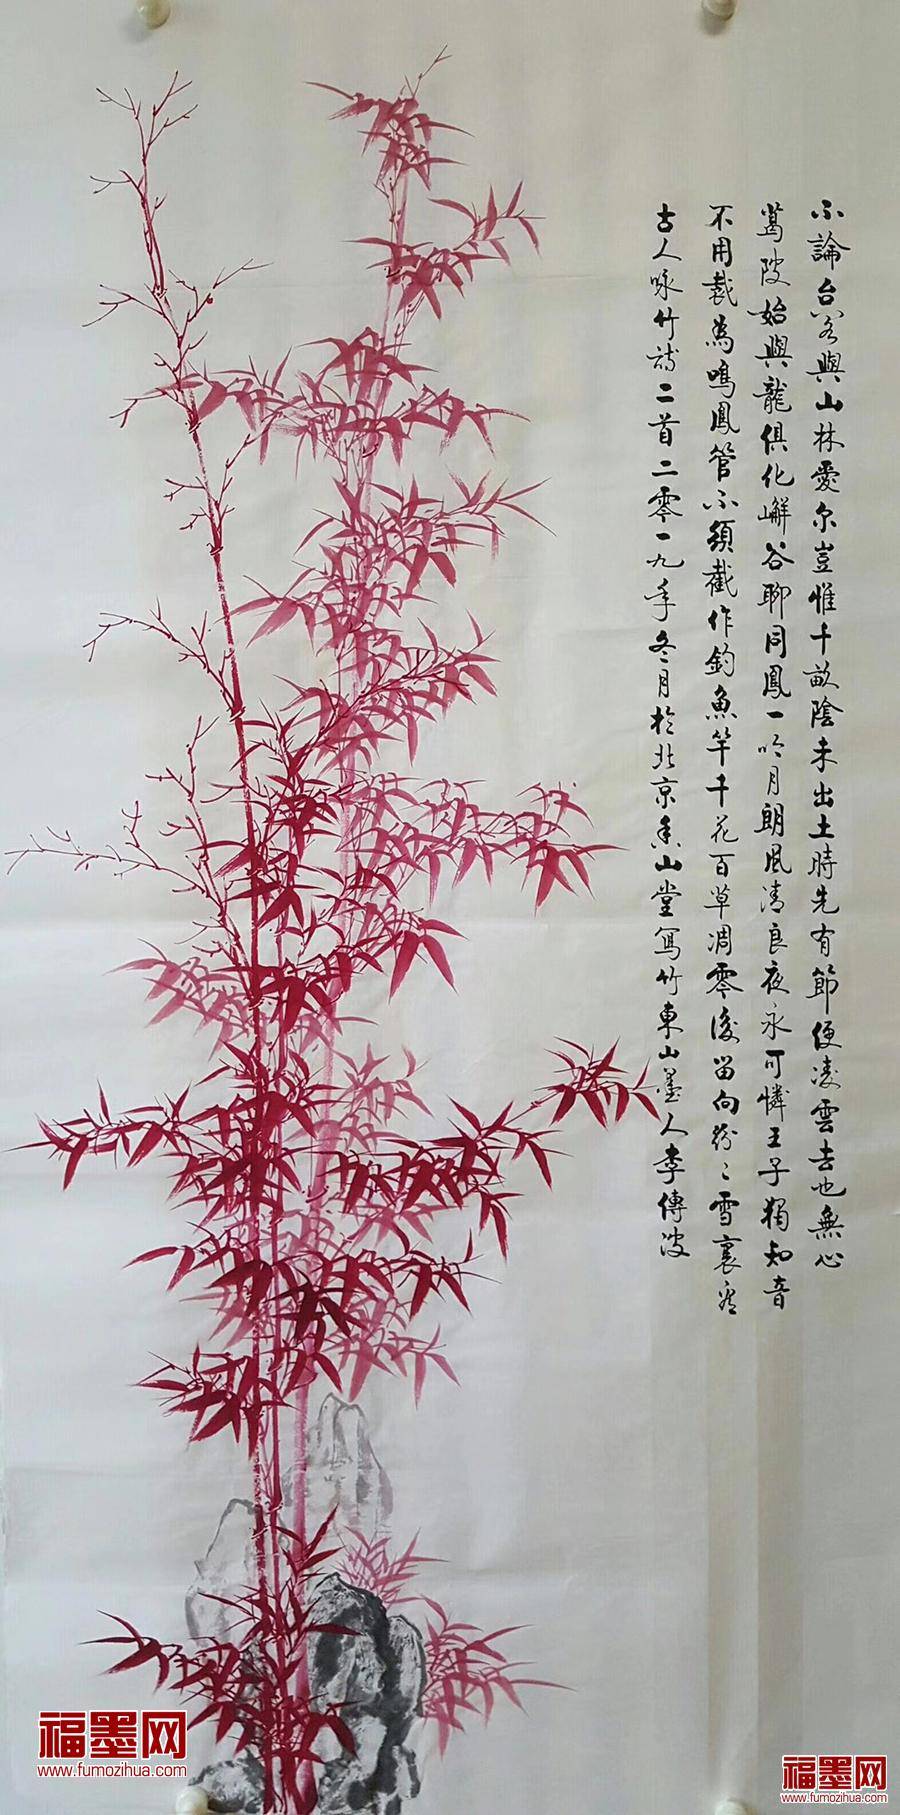 不論台閣與山林愛尔豈惟千畝陰未出土時先有節便凌雲去也無心
葛陂始與龍俱化嶰谷聊同鳳一吟月朗風清良夜永可憐王子獨知音
不用裁為鳴鳳管不須截作釣魚竿千花百草凋零後留向紛々雪裏看
古人咏竹詩二首二零一九年冬月於北京香山堂寫竹東山墨人李傳波
福墨网
www.fumozihua.com
福墨网
www.fumozihua.com